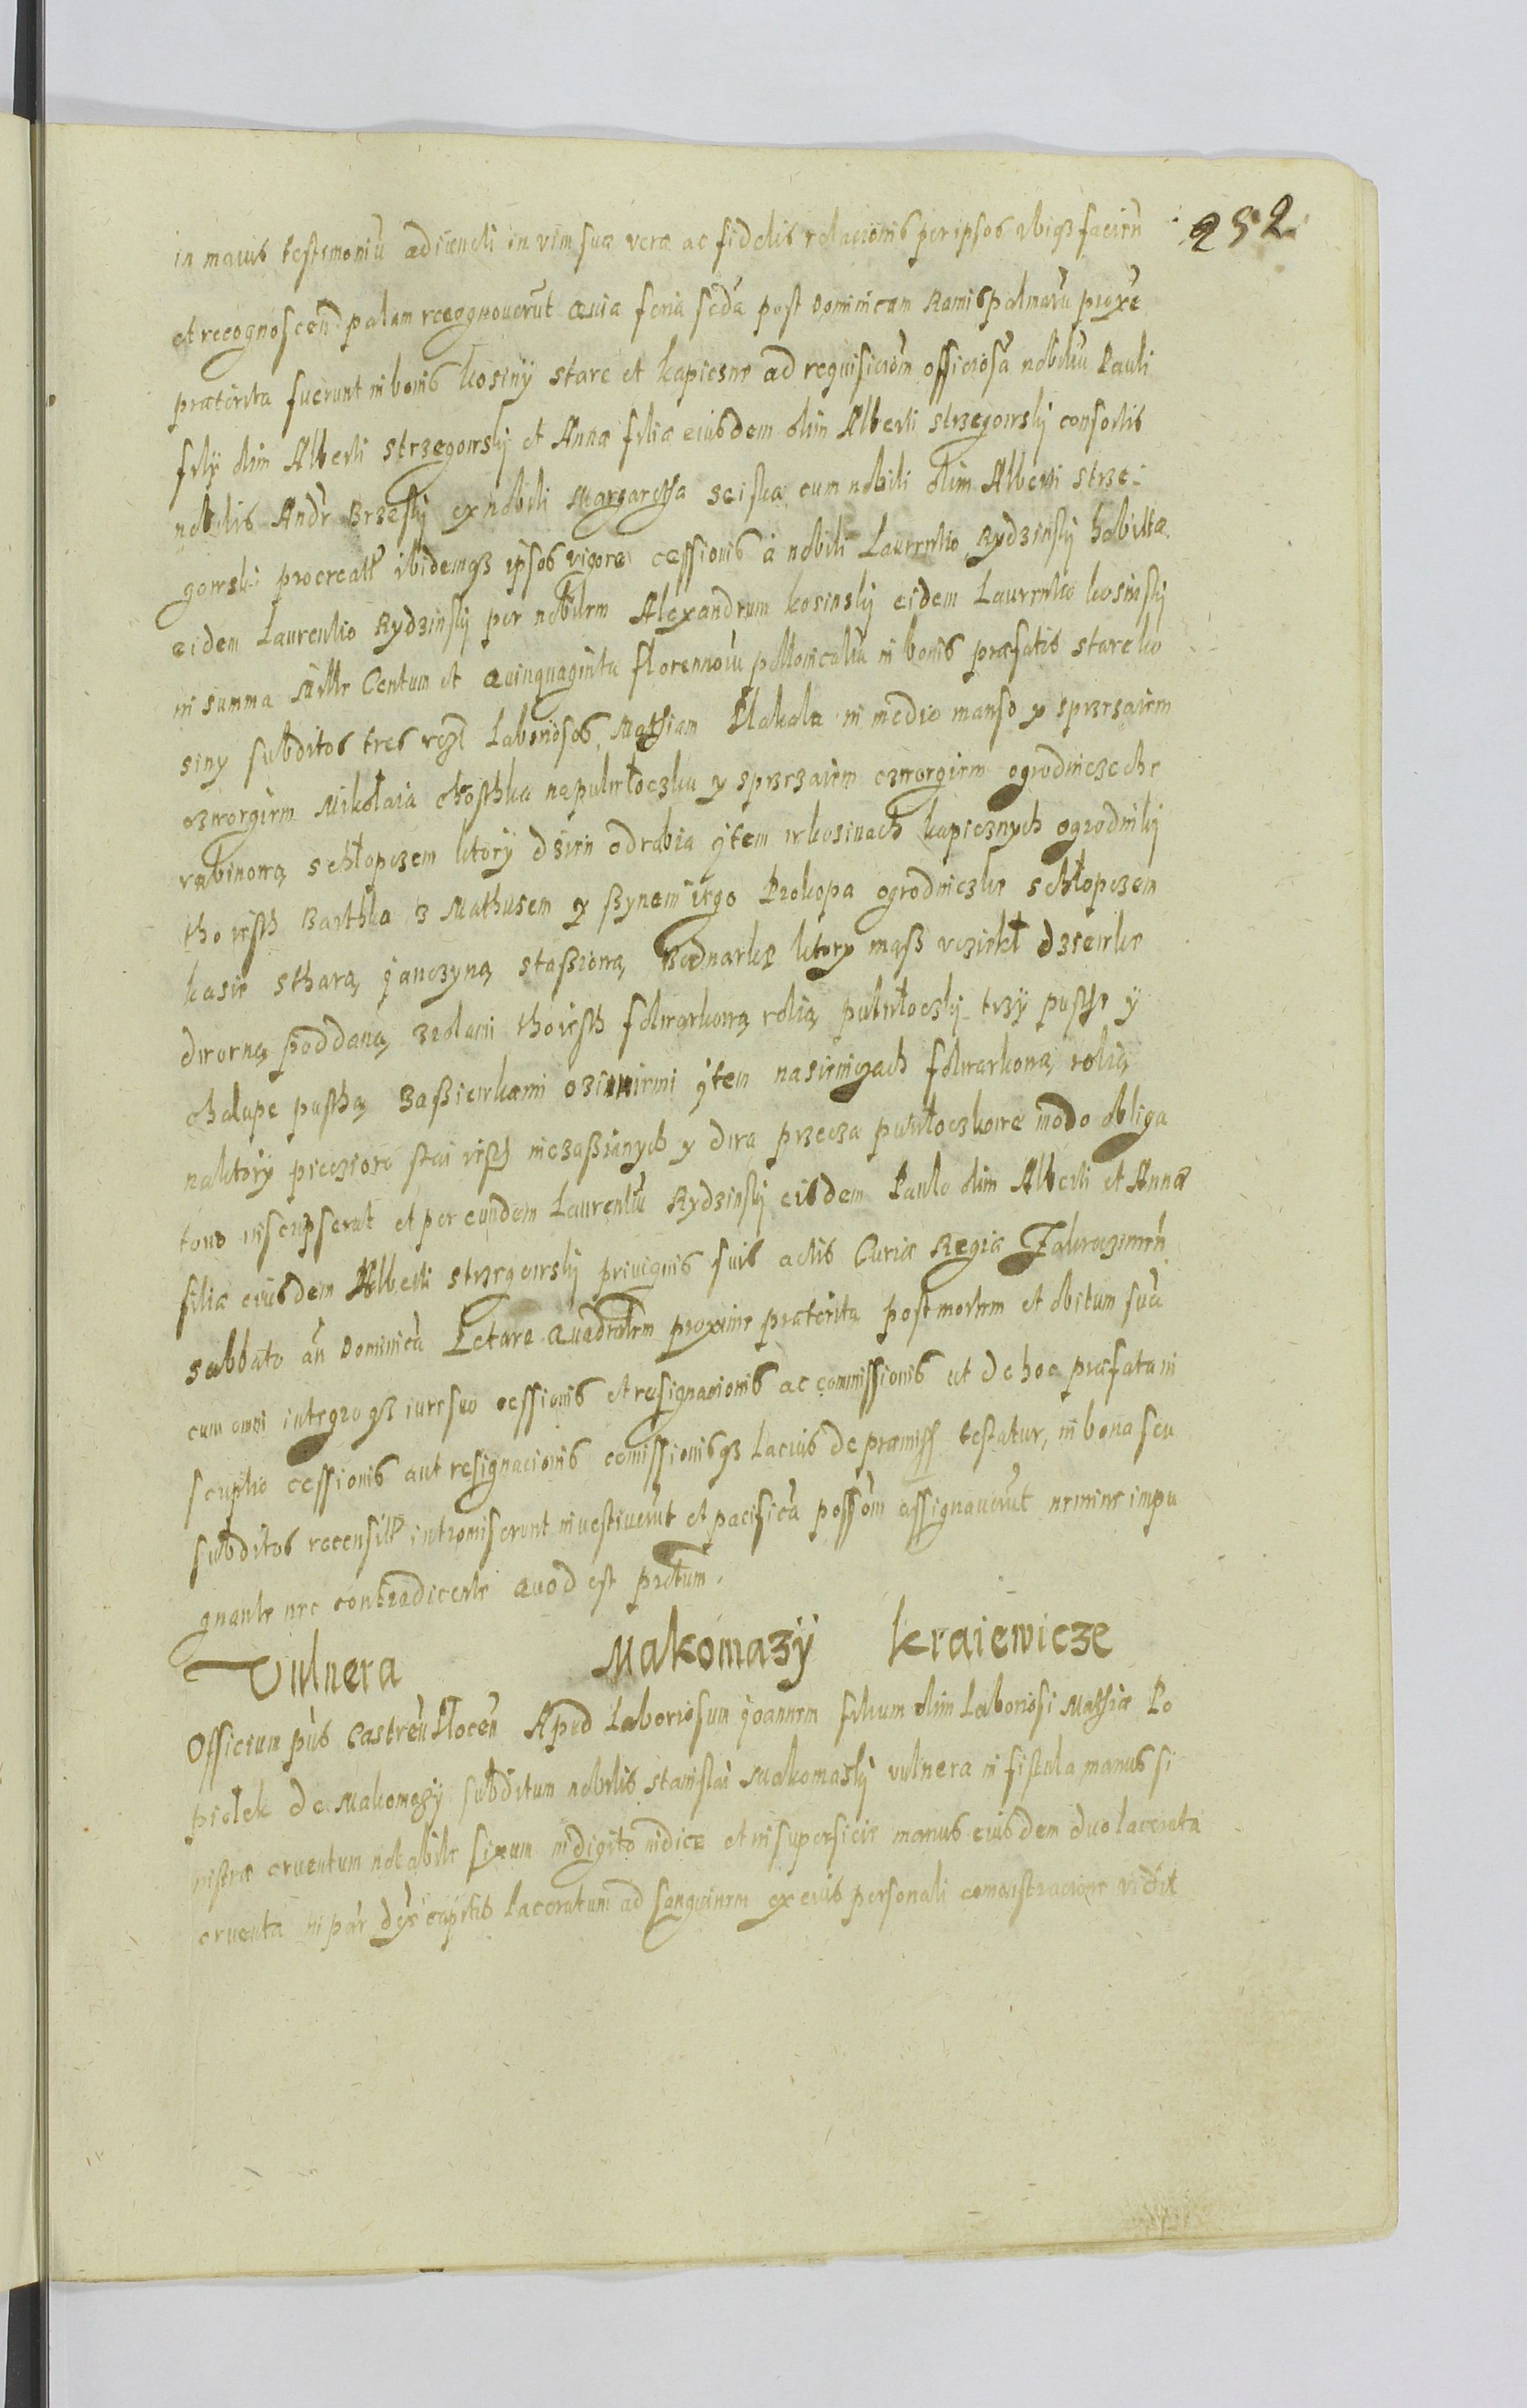 252
in maius testimoniū adiuncti in vim suæ veræ ac fidelis relacionis per ipsos vbiqз facień
et recognoscen palam recognoverūt quia feria scďa post Dominicam Ramispalmarū proxe
præterita fuerunt in bonis kosiny stare et kapiczne ad requisicionm officiosā nobiliū Pauli
filÿ olim Alberti Strzegowskÿ et Annæ filiæ eiusdem olim Alberti Strzegowskÿ consortis
nobilis Andr Brzeskÿ ex nobili Margaretha cum nobili olim Alberti Strze-
gowski procreatt ibidemqз ipsos vigore cessionis à nobili Laurentio Rydzinskÿ habittæ
eidem Laurentio Rydzinskÿ per nobilem Alexandrum kosinskÿ eidem Laurentio kosinskÿ
in summa Mille Centum et Quinquaginta florennoru pollonicaliū in bonis præfatis stare ko
siny subditos tres vczt Laboriosos, Mathiam Plakala in medio manso y sprzezaiem
czworgiem Mikołaia chosthka napulwłoczku y sprzezaiem czworgiem ogrodniczeche
rabinową schłopczem ktorÿ dzien odrabia ÿtem wkosinach kapicznych ogrodnikÿ
tho iesth Barthka з Mathusem y ßynem iego Prokopa ogrodniczke schłopczem
kasie sthara, janczyną staßiową Bednarkę ktory mąß vcziekł dziewke
dworną poddaną зrolami thoiesth folwarkową rolią pulwłoczki trzÿ pusthe ÿ
chalupe pusthą зaßiewkami oziniemi ÿtem nasienniczach folwarkową rolią
naktorÿ piecziore stai iesth niezaßianych y dwa przecza pułwłoczkowe modo obliga
torio inscripserat et per eundem Laurentiū Rydzinskÿ eisdem Paulo olim Alberti et Annæ
filiæ eiusdem Alberti Strzegowskÿ privignis suis actis Curiæ Regiæ Zakroczimen
Sabbato añ Dominicā Letare Quadrālem proxime præterita post mortem et obitum suā
cum omni integro qз iure suo cessionis et resignacionis ac commissionis ut de hoc præfata in
scriptio cessionis aut resignacionis comissionisqз Lacius de præmiss testatur, in bona seu
subditos recensitt intromiserunt investiverūt et pacificā possōm assignaverūt nemine impu
gnante nec contradicente Quod est prætum.
Vulnera Makomazÿ kraiewicze
Officium pūs Castreñ Płoceñ Apud Laboriosum joannem filium olim Laboriosi Mathiæ Po
piołek de Makomazÿ subditum nobilis Stanislai Makomaskÿ vulnera in fistula manus si
nistræ cruentum notabile sixum in digito indice et in superficie manus eiusdem duo lacerata
cruenta in par dex capitis laceratum ad sanguinem ex eius personali comonstracione vidit